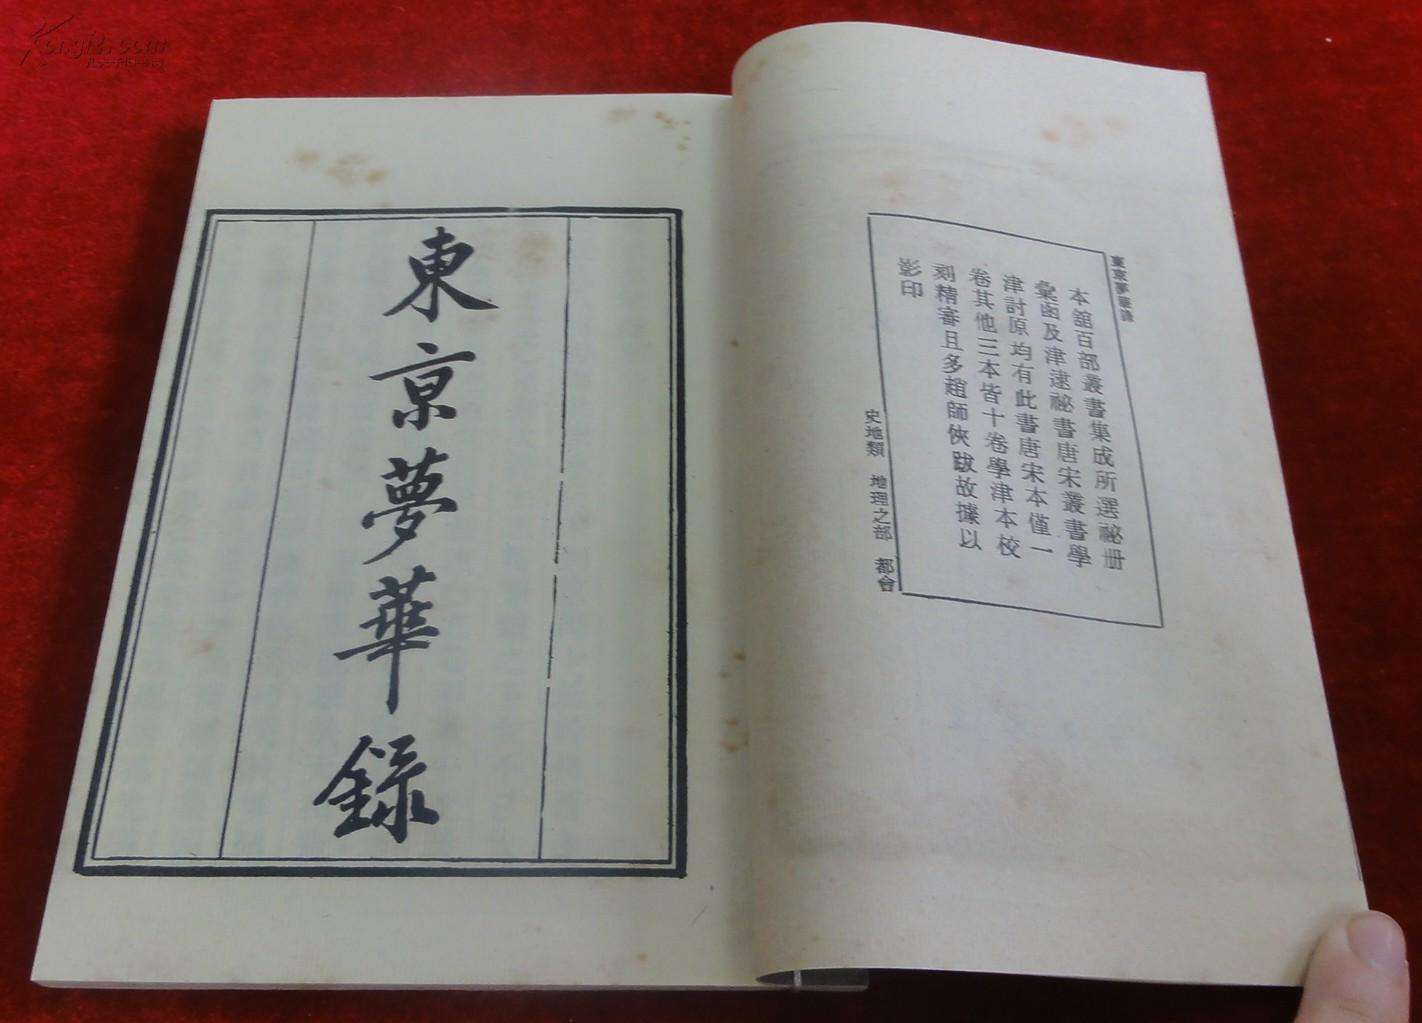 東京夢華錄
本館百部叢書集成所選祕冊
彙函及津逮祕書唐宋叢書學
津討原均有此書唐宋本僅一
卷其他三本皆十卷學津本校
刻精審且多趙師俠跋故據以
影印
東京夢華錄
史地類 地理之部 都會
Kongfz.com